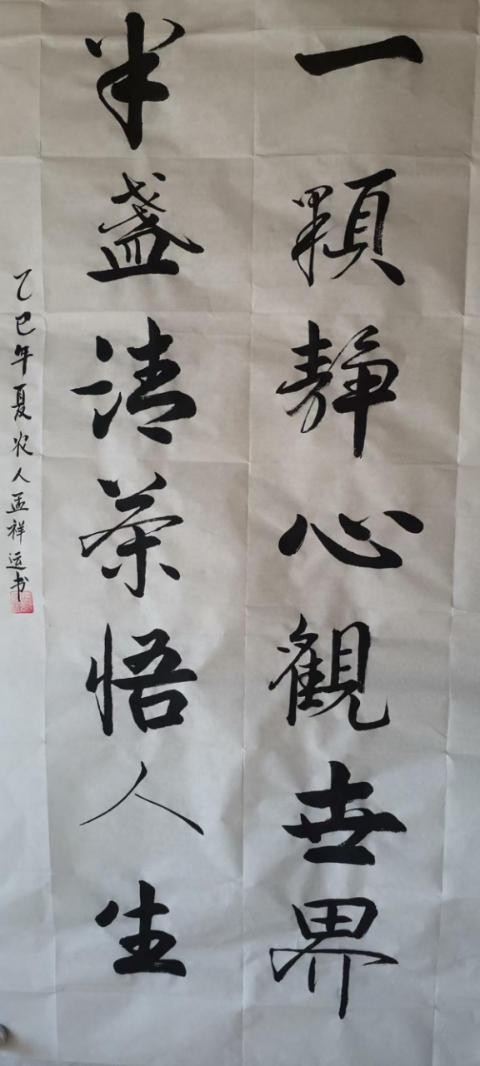 一顆静心觀世界
半盏清茶悟人生
乙巳年夏农人孟祥运书